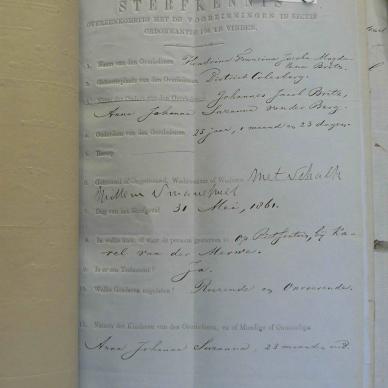 STERFKENNIS
OVEREENKOMSTIG MET DE VOORZIENINGEN IN SECTIE
ORDONNANTIE 104 TE VINDEN.
1. Naam van den Overledene. Francina Jacoba Magda-
lena Brits.
2. Geboorteplaats van den Overledene. District Colesberg.
3. Namen der Ouders van den Overledene. Johannes Jacob Brits,
Anna Johanna Susanna van der Berg.
4. Ouderdom van den Overledene. 25 jaar, 1 maand en 23 dagen.
5. Beroep
6. Getrouwd of Ongetrouwd, Weduwnaar of Weduwe. Met Schalk
Willem
7. Dag van het Sterfgeval 31 Mei, 1861.
8. In wiens huis, of waar de persoon gestorven is. Op , bij Ka-
rel van der Merwe.
9. Is er een Testament? Ja.
10. Welke Goederen nagelaten? Roerende en Onroerende.
11. Namen der Kinderen van den Overledene, en of Mondige of Onmondige.
Anna Johanna Susanna, 23 maanden oud.